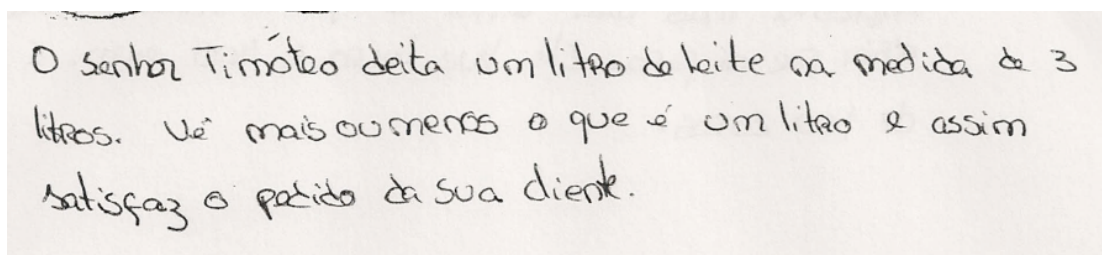 O senhor Timóteo deita um litro de leite na medida de 3
litros. Vê mais ou menos o que é um litro e assim
satisfaz o pedido da sua cliente.